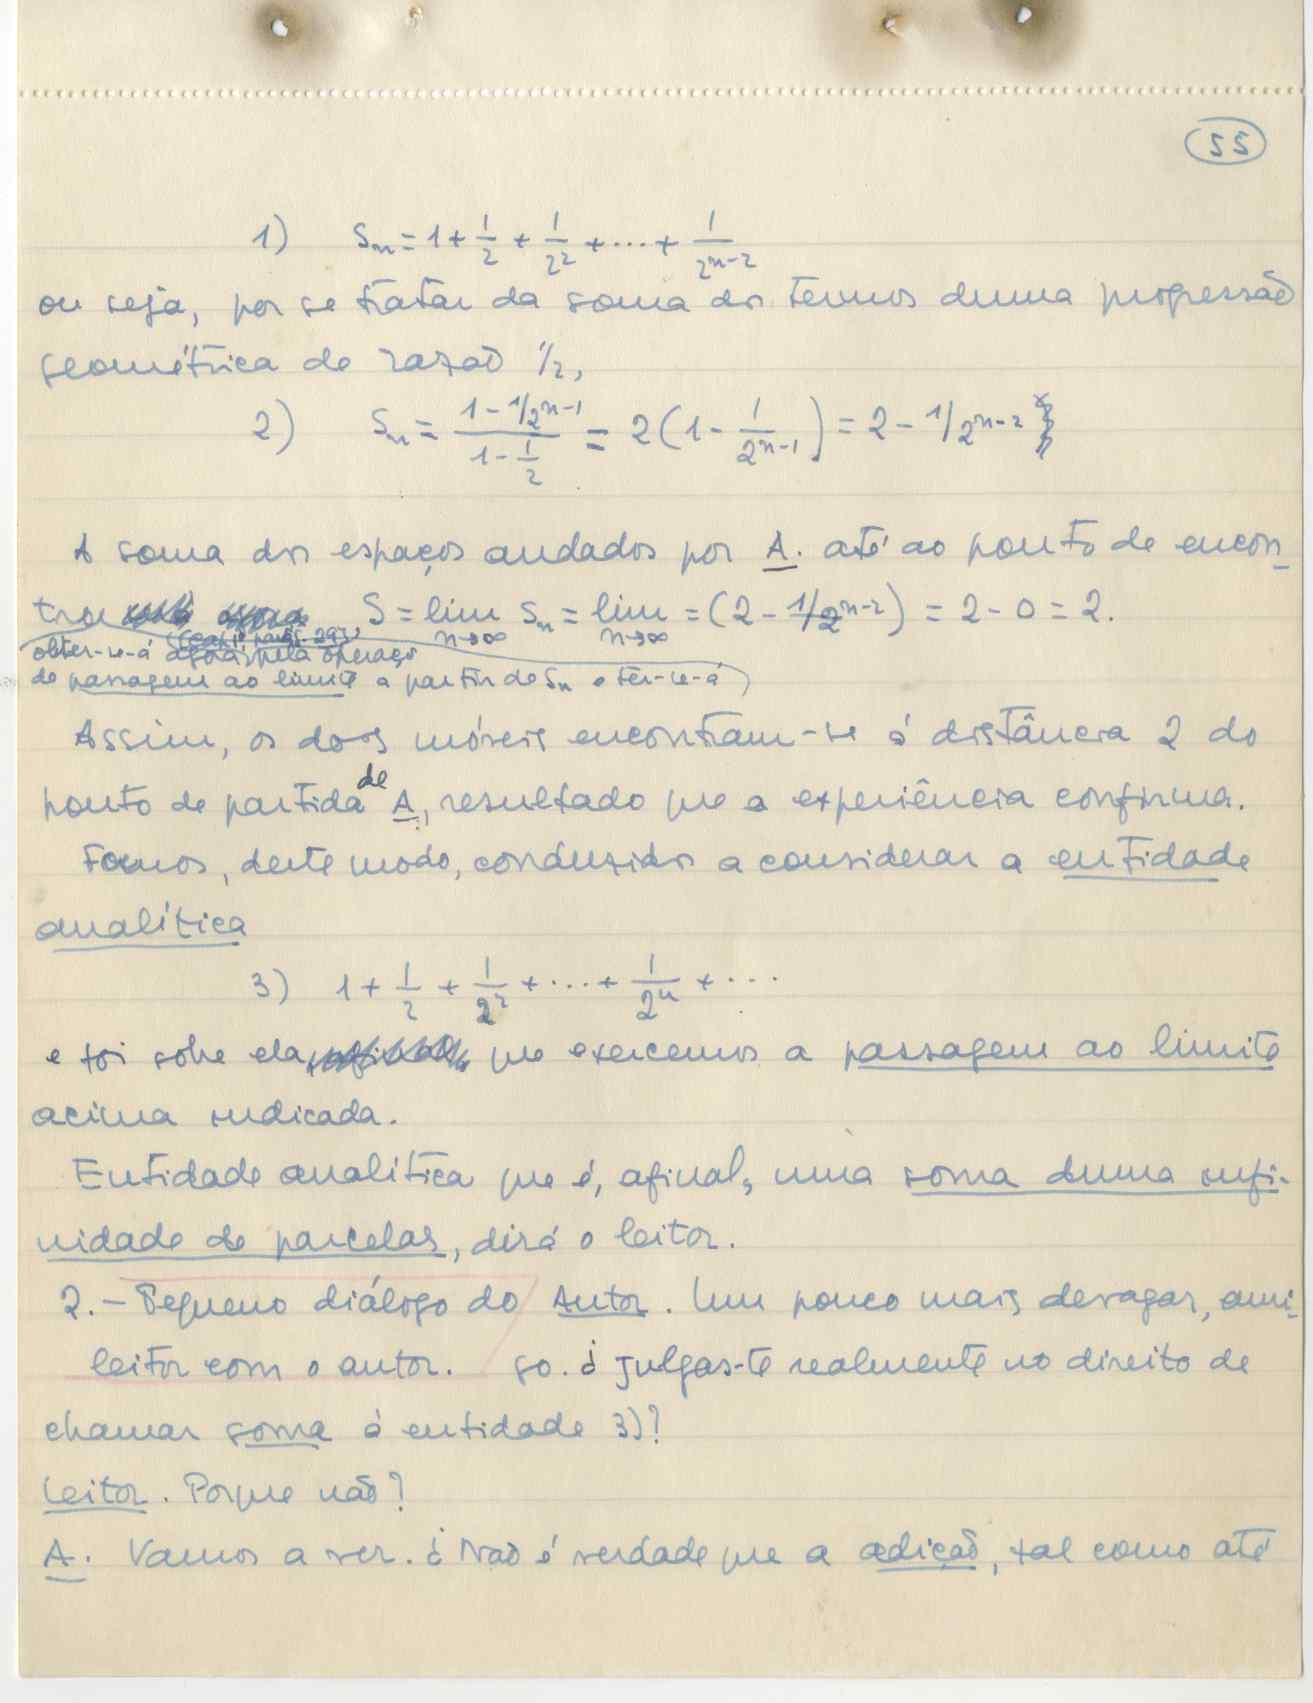 55
1) Sn = 1 + 1/2 + 1/2² + ... + 1/2ⁿ⁻²
ou seja, por se tratar da soma dos termos duma progressão
geométrica de razão 1/2,
2) Sn = (1 - 1/2ⁿ⁻¹)/(1 - 1/2) = 2(1 - 1/2ⁿ⁻¹) = 2 - 1/2ⁿ⁻²
A soma dos espaços andados por A. até ao ponto de encon-
tro S = lim n→∞ Sn = lim n→∞ = (2 - 1/2ⁿ⁻²) = 2 - 0 = 2.
obter-se-á agora, pela operaço
de passagem ao limite a partir de Sn e ter-se-á
Assim, os dois móveis encontram-se à distância 2 do
ponto de partida de A., resultado que a experiência confirma.
Fomos, deste modo, conduzidos a considerar a entidade
analítica
3) 1 + 1/2 + 1/2² + ... + 1/2ⁿ + ...
e foi sobre ela que exercemos a passagem ao limite
acima indicada.
Entidade analítica que é, afinal, uma soma duma infi-
nidade de parcelas, dirá o leitor.
2. - Pequeno diálogo do Autor. Um pouco mais devagar, ami-
leitor com o autor. go. ¿ Julgas-te realmente no direito de
chamar soma à entidade 3)?
Leitor. Porque não?
A. Vamos a ver. ¿ Não é verdade que a adição, tal como até